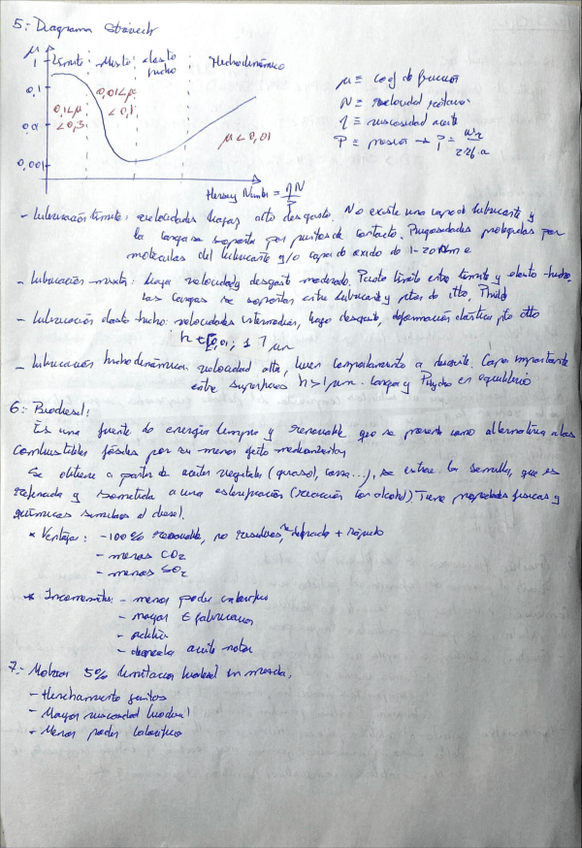 5: Diagrama Stribeck
μ
Límite Mixto elasto hidro Hidrodinámico
1
0,1
0,01
0,001
0,1<μ
<0,3
0,01<μ
<0,1
μ<0,01
Hersey Number = ηN/P
μ ≡ coef de fricción
N ≡ velocidad
η ≡ viscosidad aceite
P ≡ presión → P =
- Lubricación límite: velocidades bajas, alto desgaste. No existe una capa de lubricante y
la carga se soporta por puntos de contacto. Rugosidades protegidas por
moléculas del lubricante y/o capas de oxido de 1-20 nm
- Lubricación mixta: baja velocidad y desgaste moderado. Punto límite entre límite y elasto-hidro.
Las cargas se soportan entre lubricante y ptos de ctto.
- Lubricación elasto hidro: velocidades intermedias, bajo desgaste, deformación elástica pto ctto
h ∈ [0,01; 1] μm
- Lubricación hidrodinámica: velocidad alta, buen comportamiento a desgaste. Capa importante
entre superficies h>1μm. Carga y en equilibrio
6: Biodiesel:
Es una fuente de energía limpia y renovable que se presenta como alternativa a los
combustibles fósiles por su menor efecto
Se obtiene a partir de aceites vegetales (girasol, ...), se extrae la semilla, que es
refinada y sometida a una esterificación (reacción con alcohol) Tiene propiedades físicas y
químicas similares al diesel.
* Ventajas: - 100% renovable, no residuos, + rápido
- menos CO2
- menos SO2
* Inconvenientes - menor poder calorífico
- mayor E fabricación
-
- degrada aceite motor
7: Motores 5% limitación biodiesel en mezcla.
- Hinchamiento juntas
- Mayor viscosidad biodiesel
- Menor poder calorífico